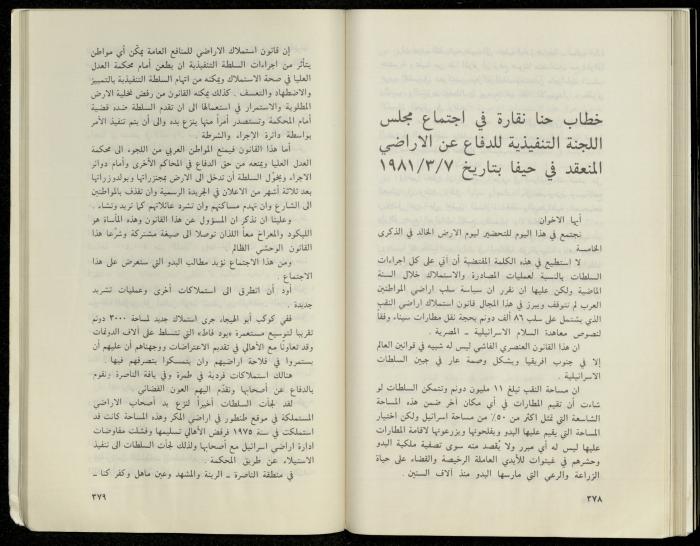 خطاب حنا نقارة في اجتماع مجلس
اللجنة التنفيذية للدفاع عن الاراضي
المنعقد في حيفا بتاريخ ١٩٨١/٣/٧
أيها الاخوان
نجتمع في هذا اليوم للتحضير ليوم الارض الخالد في الذكرى
الخامسة .
لا استطيع في هذه الكلمة المقتضية أن آتي على كل اجراءات
السلطات بالنسبة لعمليات المصادرة والاستملاك خلال السنة
الماضية ولكن علينا ان نقرر ان سياسة سلب اراضي المواطنين
العرب لم تتوقف ويبرز في هذا المجال قانون استملاك اراضي النقب
الذي يشتمل على سلب ٨٦ ألف دونم بحجة نقل مطارات سيناء وفقاً
لنصوص معاهدة السلام الاسرائيلية ـ المصرية .
ان هذا القانون العنصري الفاشي ليس له شبيه في قوانين العالم
إلا في جنوب افريقيا ويشكل وصمة عار في جبين السلطات
الاسرائيلية .
ان مساحة النقب تبلغ ١١ مليون دونم وتتمكن السلطات لو
شاءت أن تقيم المطارات في أي مكان آخر ضمن هذه المساحة
الشاسعة التي تمثل اكثر من ٥٠٪ من مساحة اسرائيل ولكن اختيار
المساحة التي يقيم عليها البدو ويفلحونها ويزرعونها لاقامة المطارات
عليها ليس له أي مبرر ولا يُقصد منه سوى تصفية ملكية البدو
وحشرهم في غيتوات للأيدي العاملة الرخيصة والقضاء على حياة
الزراعة والرعي التي مارسها البدو منذ آلاف السنين .
٣٧٨
إن قانون استملاك الاراضي للمنافع العامة يمكّن أي مواطن
يتأثر من اجراءات السلطة التنفيذية ان يطعن أمام محكمة العدل
العليا في صحة الاستملاك ويمكنه من اتهام السلطة التنفيذية بالتمييز
والاضطهاد والتعسف . كذلك يمكنه القانون من رفض تخلية الارض
المطلوبة والاستمرار في استعمالها الى ان تقدم السلطة ضده قضية
أمام المحكمة وتستصدر أمراً منها ينزع يده والى أن يتم تنفيذ الأمر
بواسطة دائرة الاجراء والشرطة .
أما هذا القانون فيمنع المواطن العربي من اللجوء الى محكمة
العدل العليا ويمنعه من حق الدفاع في المحاكم الأخرى وأمام دوائر
الاجراء ويخوّل السلطة أن تدخل الى الارض بمجنزراتها وبولدوزراتها
بعد ثلاثة أشهر من الاعلان في الجريدة الرسمية وان تقذف بالمواطنين
الى الشارع وان تهدم مساكنهم وان تشرد عائلاتهم كما تريد وتشاء .
وعلينا ان نذكر ان المسؤول عن هذا القانون وهذه المأساة هو
الليكود والمعراخ معاً اللذان توصلا الى صيغة مشتركة وشرّعا هذا
القانون الوحشي الظالم .
ومن هذا الاجتماع نؤيد مطالب البدو التي ستعرض على هذا
الاجتماع .
أود أن اتطرق الى استملاكات أخرى وعمليات تشريد
جديدة .
ففي كوكب أبو الهيجاء جرى استملاك جديد لمساحة ٣٠٠٠ دونم
تقريبا لتوسيع مستعمرة «يود فاط» التي تتسلط على آلاف الدونمات
وقد تعاونّا مع الأهالي في تقديم الاعتراضات ووجهناهم أن عليهم أن
يستمروا في فلاحة اراضيهم وان يتمسكوا بتصرفهم فيها .
هنالك استملاكات فردية في طمرة وفي يافة الناصرة ونقوم
بالدفاع عن أصحابها ونقدّم اليهم العون القضائي .
لقد لجأت السلطات أخيراً لنزع يد أصحاب الاراضي
المستملكة في موقع طنطور في اراضي المكر وهذه المساحة كانت قد
استملكت في سنة ١٩٧٥ فرفض الأهالي تسليمها وفشلت مفاوضات
ادارة اراضي اسرائيل مع أصحابها ولذلك لجأت السلطات الى تنفيذ
الاستيلاء عن طريق المحكمة .
في منطقة الناصرة ـ الرينة والمشهد وعين ماهل وكفر كنا ـ
٣٧٩